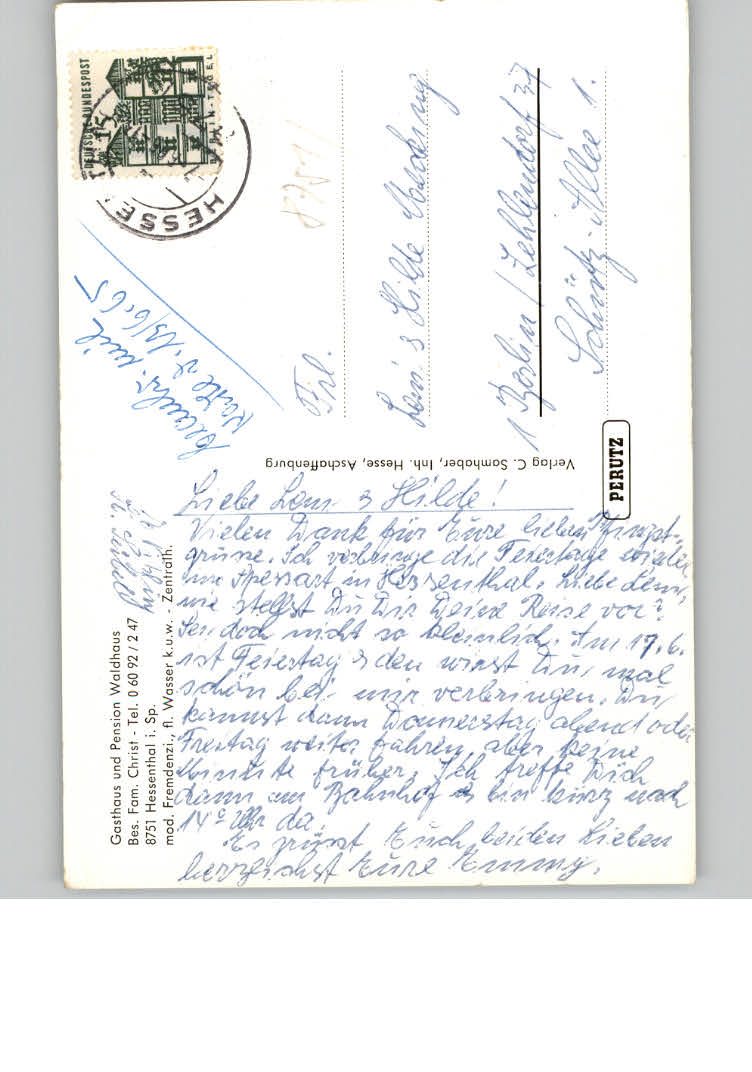 Gasthaus und Pension Waldhaus
Bes. Fam. Christ - Tel. 0 60 92 / 2 47
8751 Hessenthal i. Sp.
mod. Fremdenzi., fl. Wasser k.u.w. - Zentralh.
Liebe Leni & Hilde!
Vielen Dank für Eure lieben Pfingst-
grüsse. Ich verbringe die Feiertage wieder
im Spessart in Hessenthal. Liebe Leni,
wie stellst Du Dir Deine Reise vor?
Sei doch nicht so kleinlich. Am 17.6.
ist Feiertag & den wirst Du mal
schön bei mir verbringen. Du
kannst dann Donnerstag abend oder
Freitag weiter fahren, aber keine
Minute früher. Ich treffe Dich
dann am Bahnhof & bin kurz nach
14° Uhr da.
Es grüsst Euch beiden Lieben
herzlichst Eure Emmy.
Verlag C. Samhaber, Inh. Hesse, Aschaffenburg
PERUTZ
DEUTSCHE BUNDESPOST
15
BERLIN-TEGEL
HESSE
8751
mit
Karte v. 13/6.65
Frl.
Leni & Hilde
1 Berlin / Zehlendorf 37
Schütz-Allee 1.